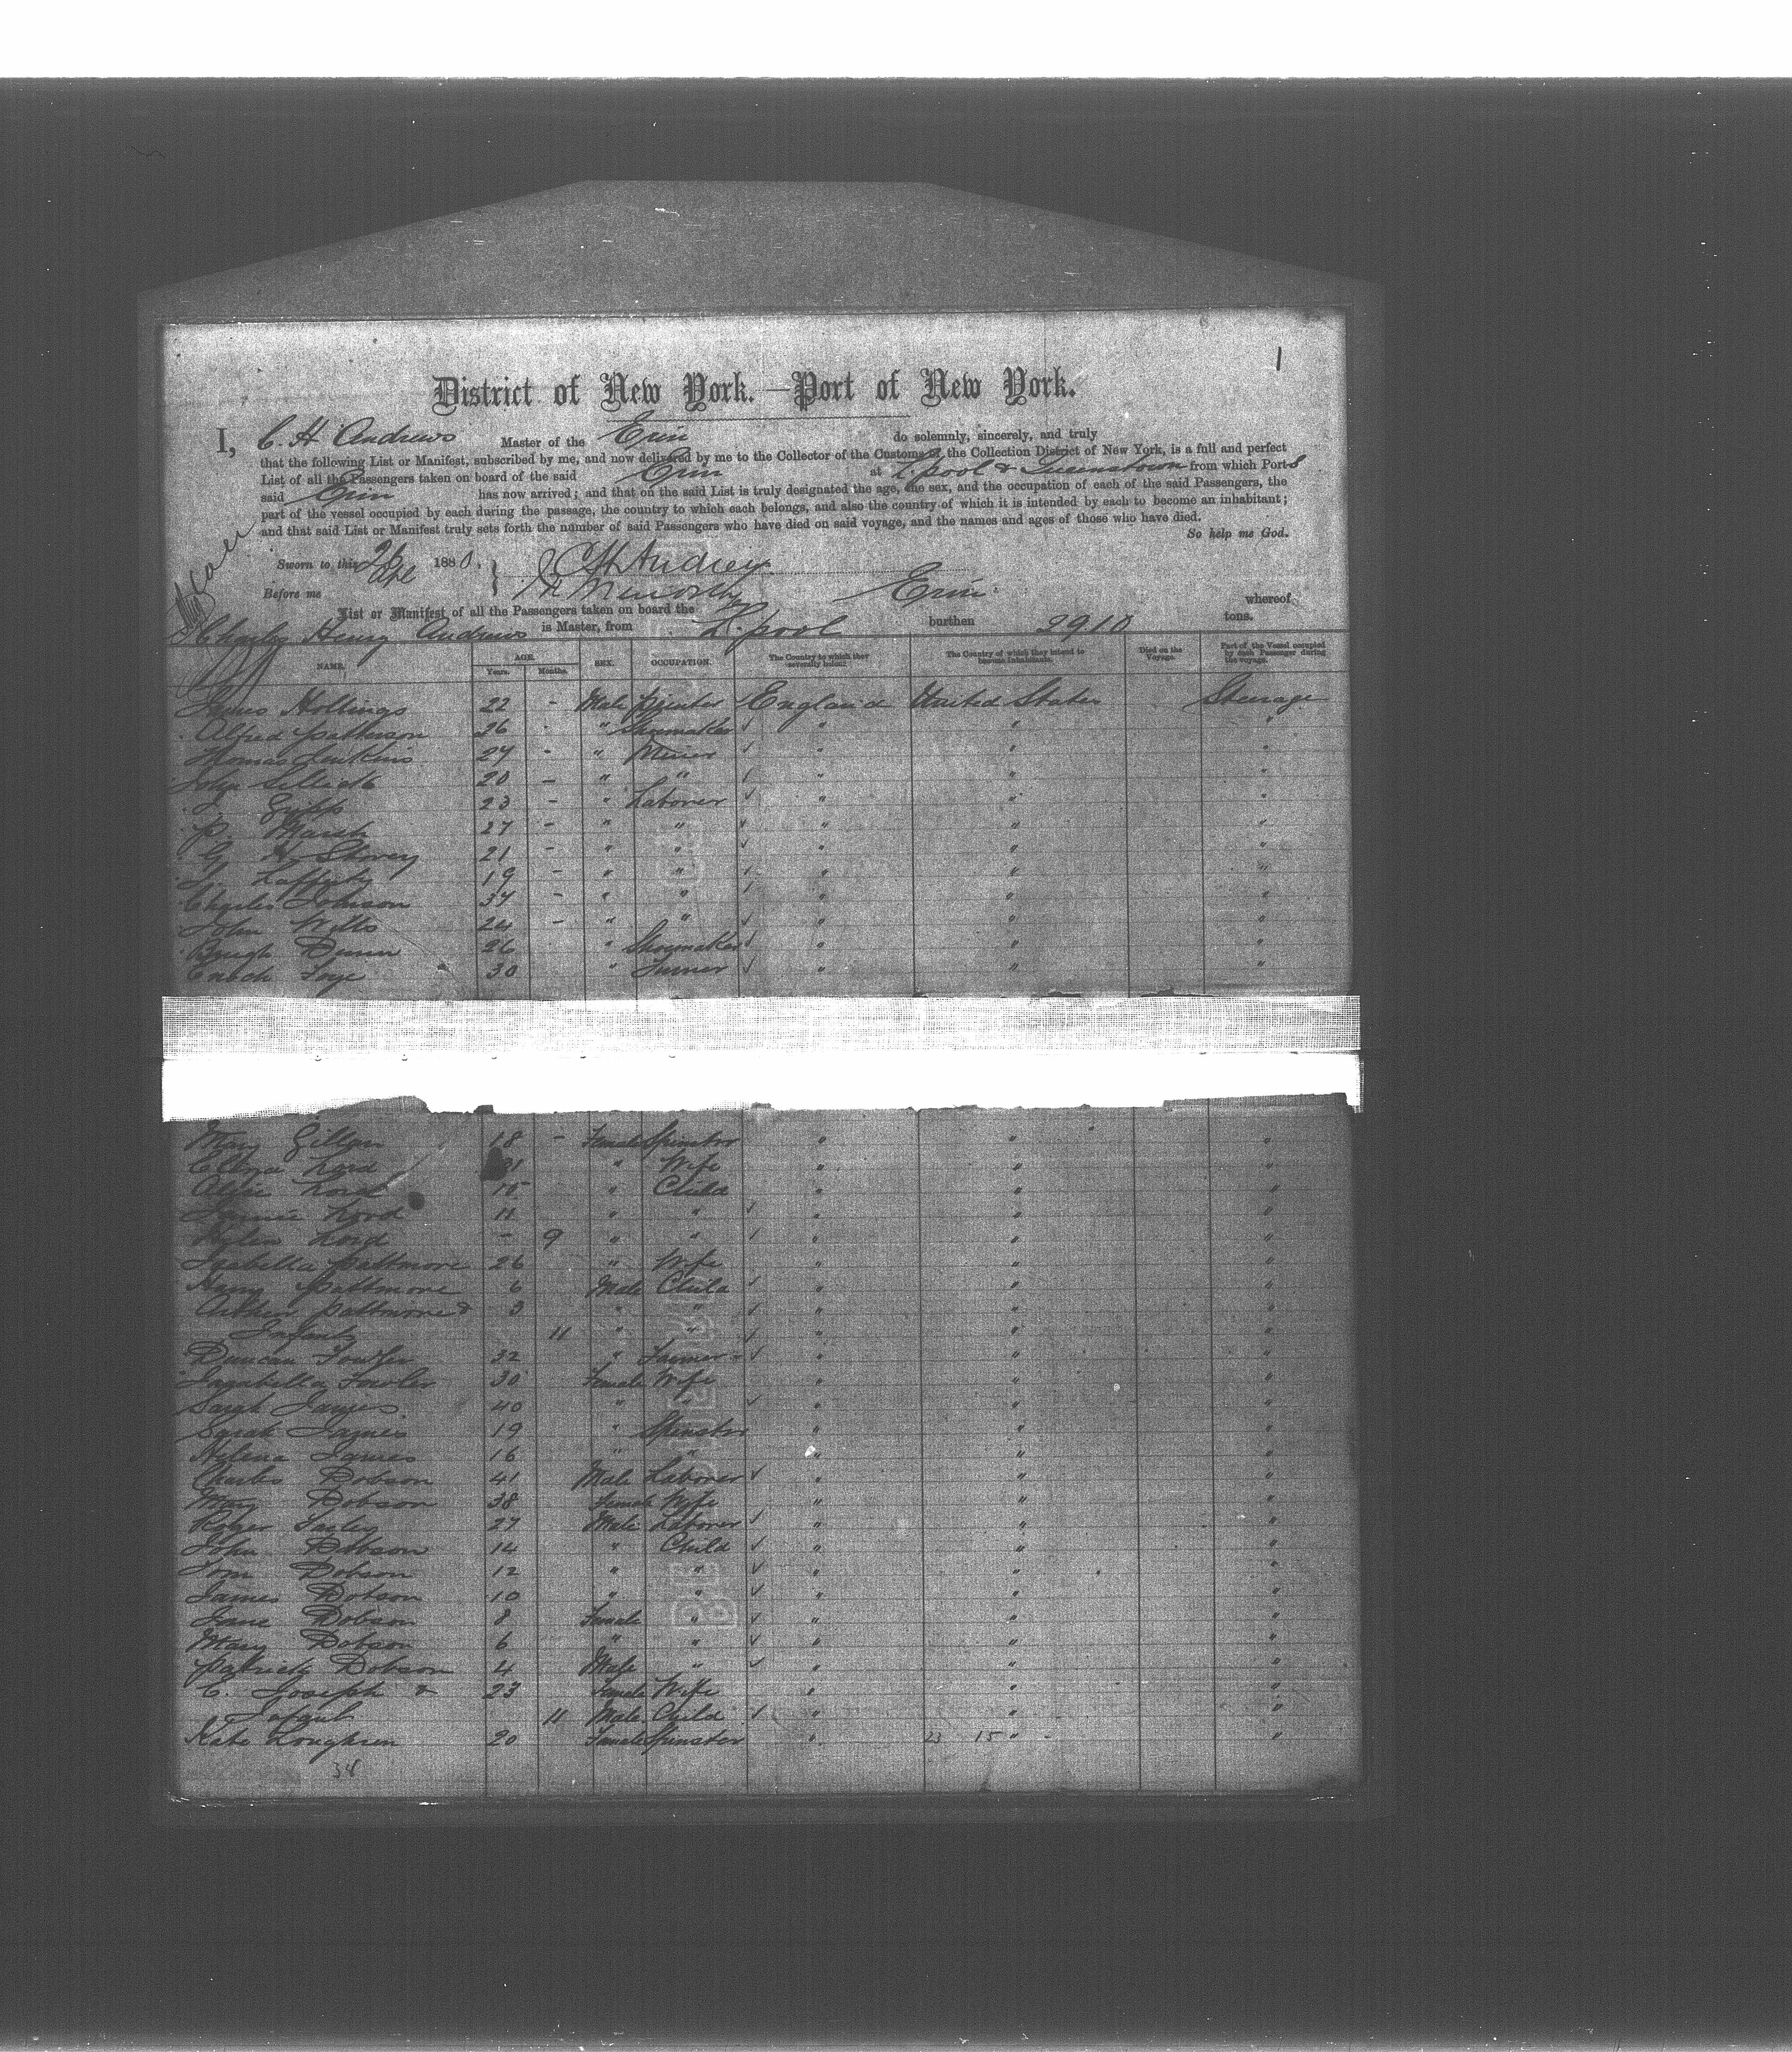 1
District of New York.—Port of New York.
I, C. H. Andrews Master of the Erin do solemnly, sincerely, and truly
that the following List or Manifest, subscribed by me, and now delivered by me to the Collector of the Customs of the Collection District of New York, is a full and perfect
List of all the Passengers taken on board of the said Erin at L.pool & Queenstown from which Ports
said Erin has now arrived; and that on the said List is truly designated the age, the sex, and the occupation of each of the said Passengers, the
part of the vessel occupied by each during the passage, the country to which each belongs, and also the country of which it is intended by each to become an inhabitant;
and that said List or Manifest truly sets forth the number of said Passengers who have died on said voyage, and the names and ages of those who have died.
So help me God.
Sworn to this 26 Apl 1880.
Before me
List or Manifest of all the Passengers taken on board the Erin whereof
Charles Henry Andrews is Master, from L.pool burthen 2910 tons.
NAME. AGE. Years. Months. SEX. OCCUPATION. The Country to which they severally belong. The Country of which they intend to become inhabitants. Died on the Voyage. Part of the Vessel occupied by each Passenger during the voyage.
James Hollings 22 - Male Painter England United States Steerage
Alfred Patterson 26 - " Shoemaker " " "
Thomas Jenkins 24 - " Miner " " "
John 20 - " " " " "
23 - " Laborer " " "
P. Marsh 27 - " " " " "
G. H. Storey 21 - " " " " "
19 - " " " " "
Charles Johnson 34 - " " " " "
John Wills 24 - " " " " "
Dunn 26 " Shoemaker " " "
Enoch Foye 30 " " " "
Mary Gillan 18 - Female Spinster " " "
Lord 31 " Wife " " "
Alice Lord " Child " " "
Lord 11 " " " " "
Lord - 9 " " " " "
Isabella Pattmore 26 " Wife " " "
Harry Pattmore 6 Male Child " " "
Arthur Pattmore & 3 " " " " "
Infant 11 " " " " "
Duncan Fowler 32 " Farmer " " "
Isabella Fowler 30 Female Wife " " "
Sarah James 40 " " " " "
Sarah James 19 " Spinster " " "
Helena James 16 " " " " "
Charles Dobson 41 Male Laborer " " "
Mary Dobson 38 Female Wife " " "
Roger Farley 27 Male Laborer " " "
John Dobson 14 " Child " " "
Tom Dobson 12 " " " " "
James Dobson 10 " " " " "
Jane Dobson 8 Female " " " "
Mary Dobson 6 " " " " "
Patrick Dobson 4 Male " " " "
C. Joseph & 23 Female Wife " " "
Infant 11 Male Child " " "
Kate Loughren 20 Female Spinster " 23 15 " "
38